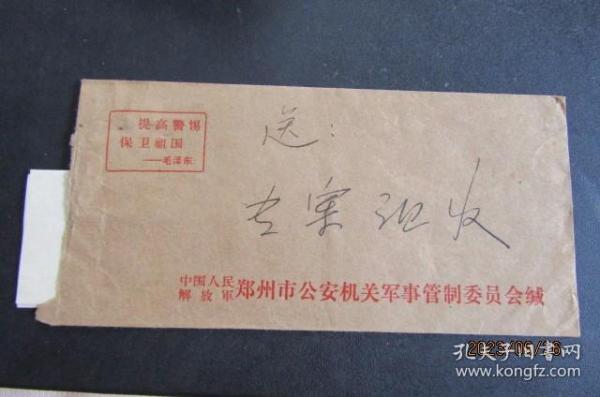 提高警惕
保卫祖国
——毛泽东
送：
专案组收
中国人民
解放軍
郑州市公安机关军事管制委员会缄
2023/05/16
孔夫子旧书网
www.kongfz.com